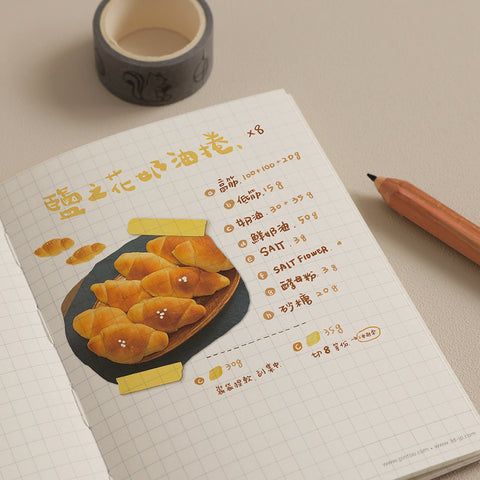 鹽之花奶油捲、 ×8
a 高筋. 100+100+20g
b 低筋. 15g
c 奶油. 30+35g
d 鮮奶油. 50g
e SALT. 3g
f SALT FLOWER.
g 酵母粉 3g
h 砂糖 20g
c 30g
c 35g
切8等份
www.pinllac.com • www.as-jp.com